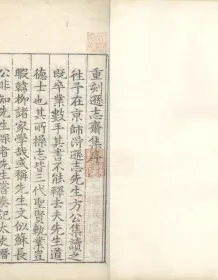 重刻遜志齋集序
往予在京師得遜志先生方公集讀之
既卒業數手其書不能釋去夫先生道
德士也其所操志皆三代聖賢執業豈
暇韓柳諸家學哉或稱先生文似蘇長
公非知先生深者先生嘗奏記太史